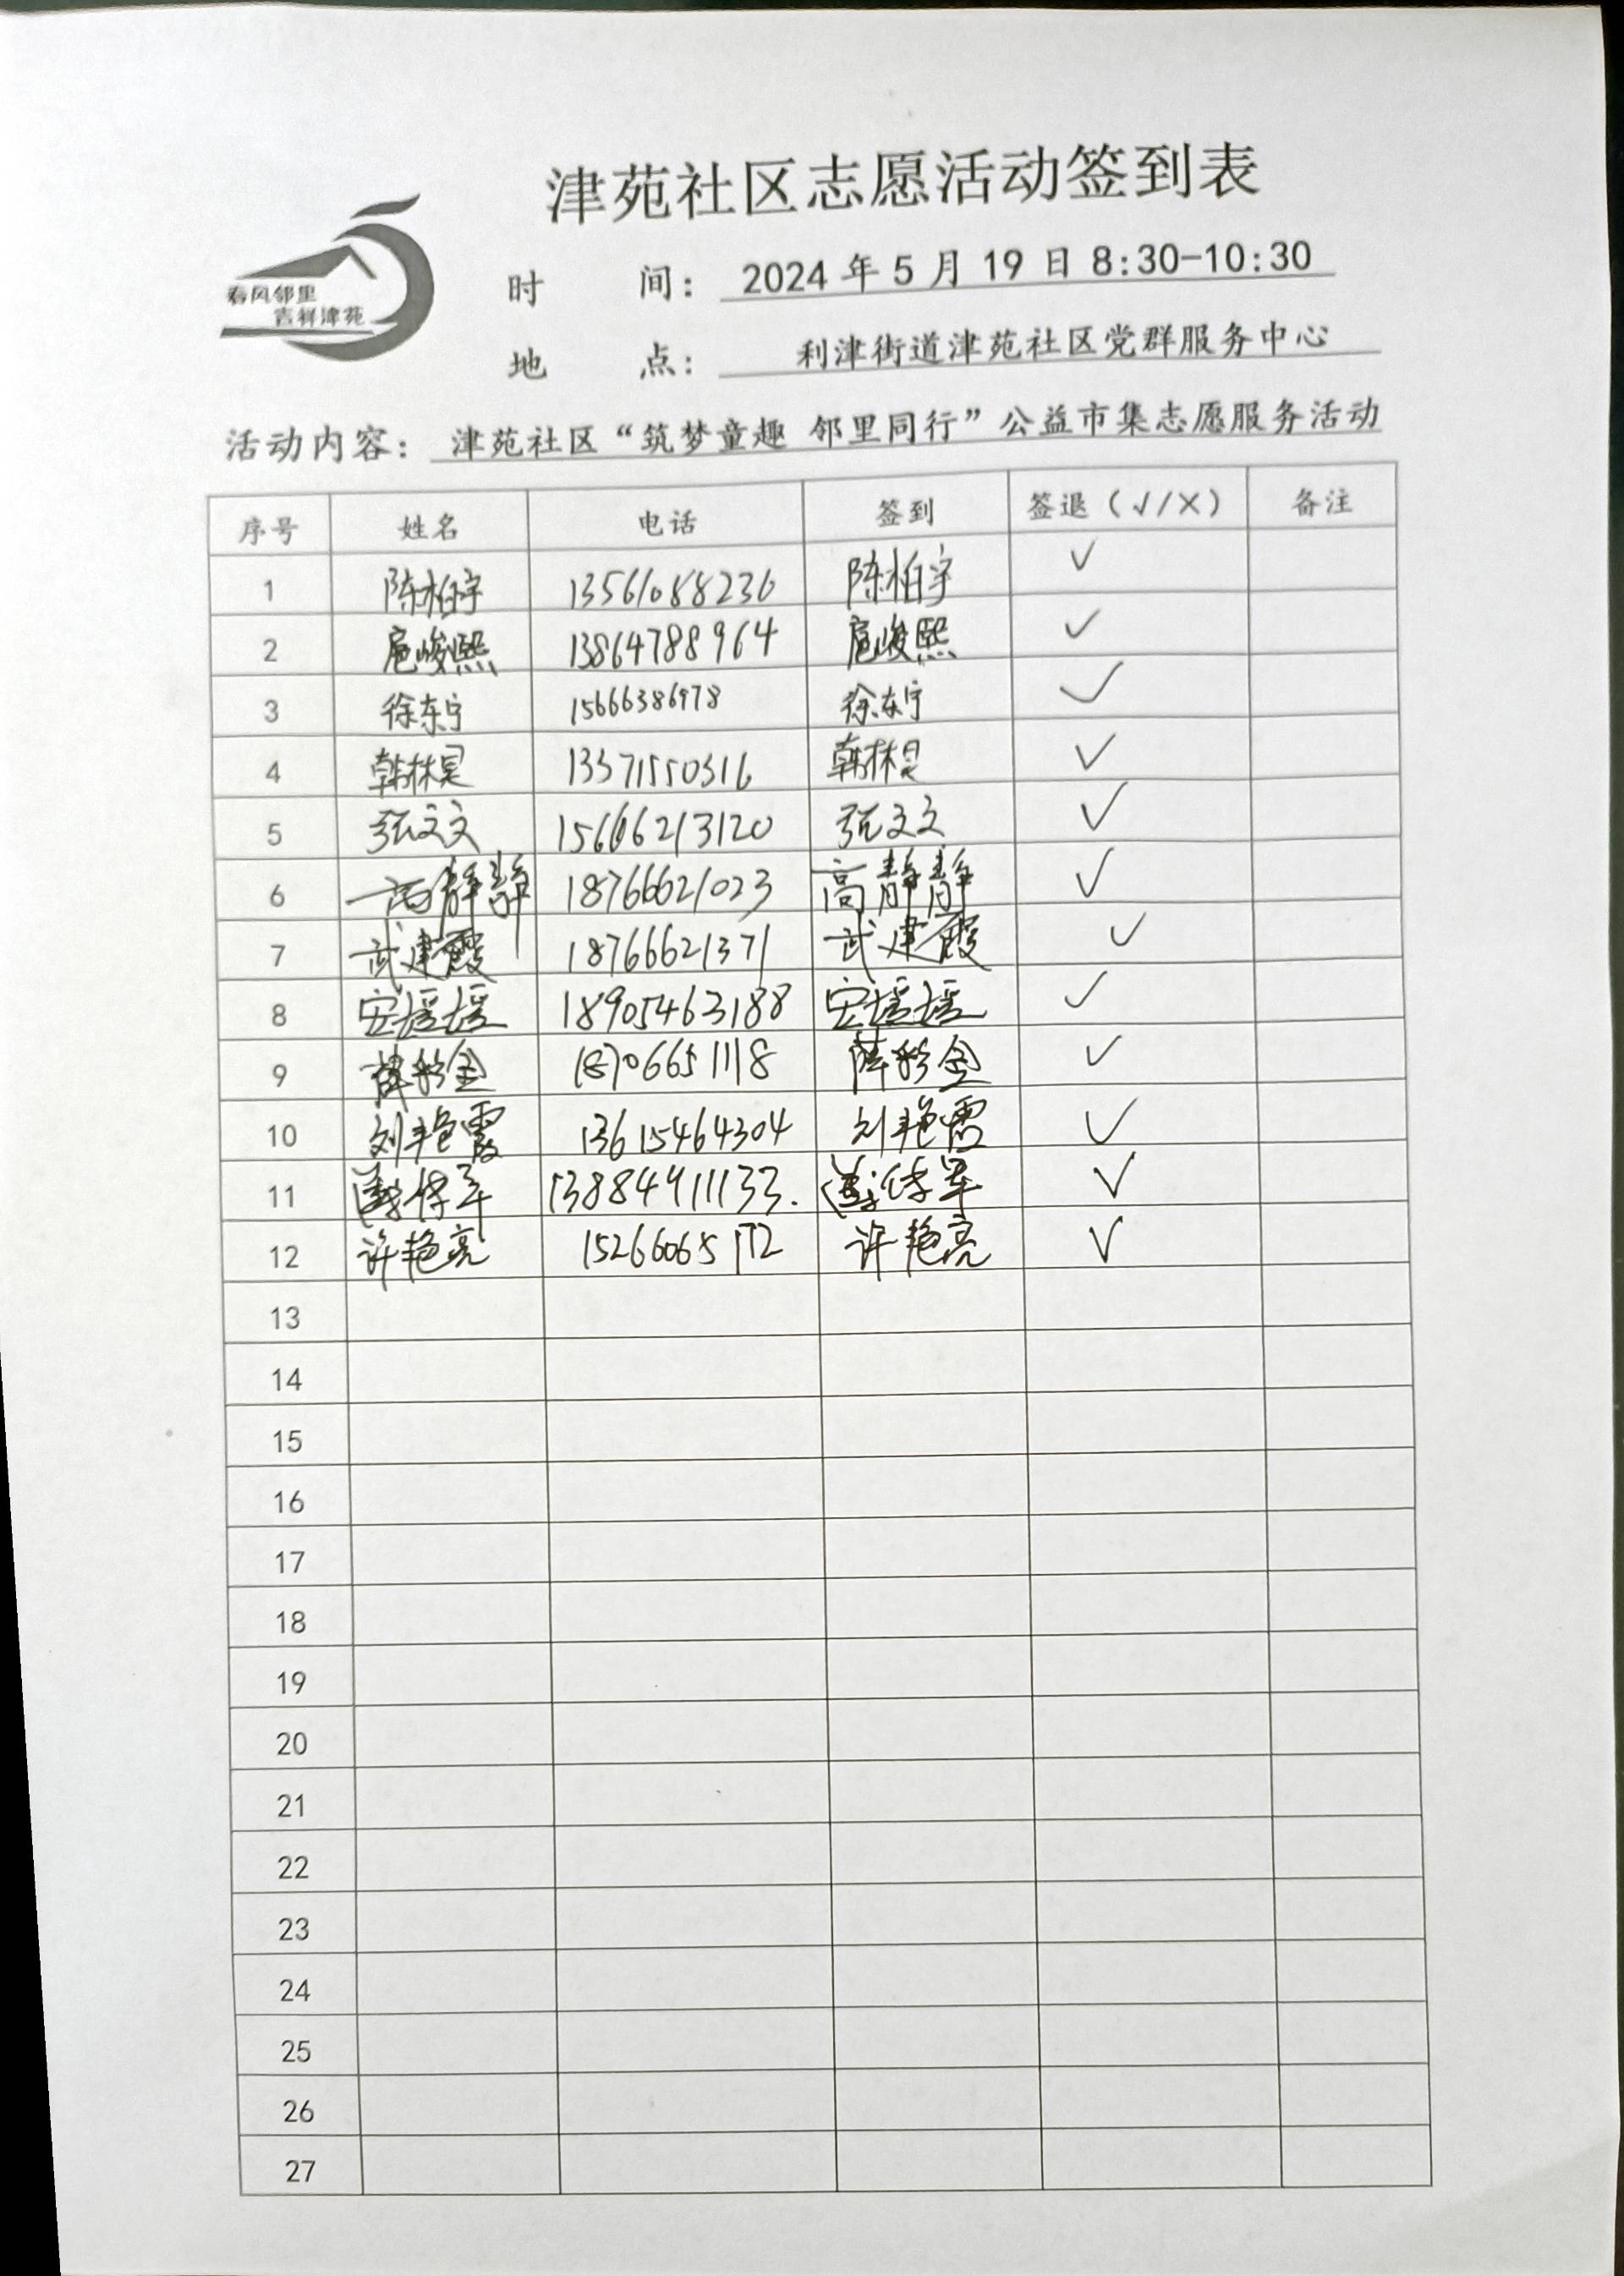 津苑社区志愿活动签到表
春风邻里
吉祥津苑
时 间: 2024 年 5 月 19 日 8:30-10:30
地 点: 利津街道津苑社区党群服务中心
活动内容: 津苑社区“筑梦童趣 邻里同行”公益市集志愿服务活动
序号 姓名 电话 签到 签退（√/×） 备注
1 陈柏宇 13561088236 陈柏宇 ✓
2 扈峻熙 13864788964 扈峻熙 ✓
3 徐东宁 15666386978 徐东宁 ✓
4 韩林昊 13371550316 韩林昊 ✓
5 张文文 15666213120 张文文 ✓
6 高静静 18766621023 高静静 ✓
7 武建霞 18766621371 武建霞 ✓
8 安瑶瑶 18905463188 安瑶瑶 ✓
9 薛彩金 18706651118 薛彩金 ✓
10 刘艳霞 13615464304 刘艳霞 ✓
11 13884911133. ✓
12 许艳亮 15266065172 许艳亮 ✓
13
14
15
16
17
18
19
20
21
22
23
24
25
26
27